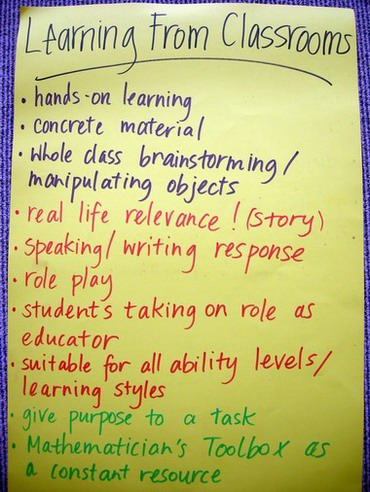 Learning From Classrooms
• hands-on learning
• concrete material
• whole class brainstorming/
manipulating objects
• real life relevance! (story)
• speaking/writing response
• role play
• students taking on role as
educator
• suitable for all ability levels/
learning styles
• give purpose to a task
• Mathematician's Toolbox as
a constant resource